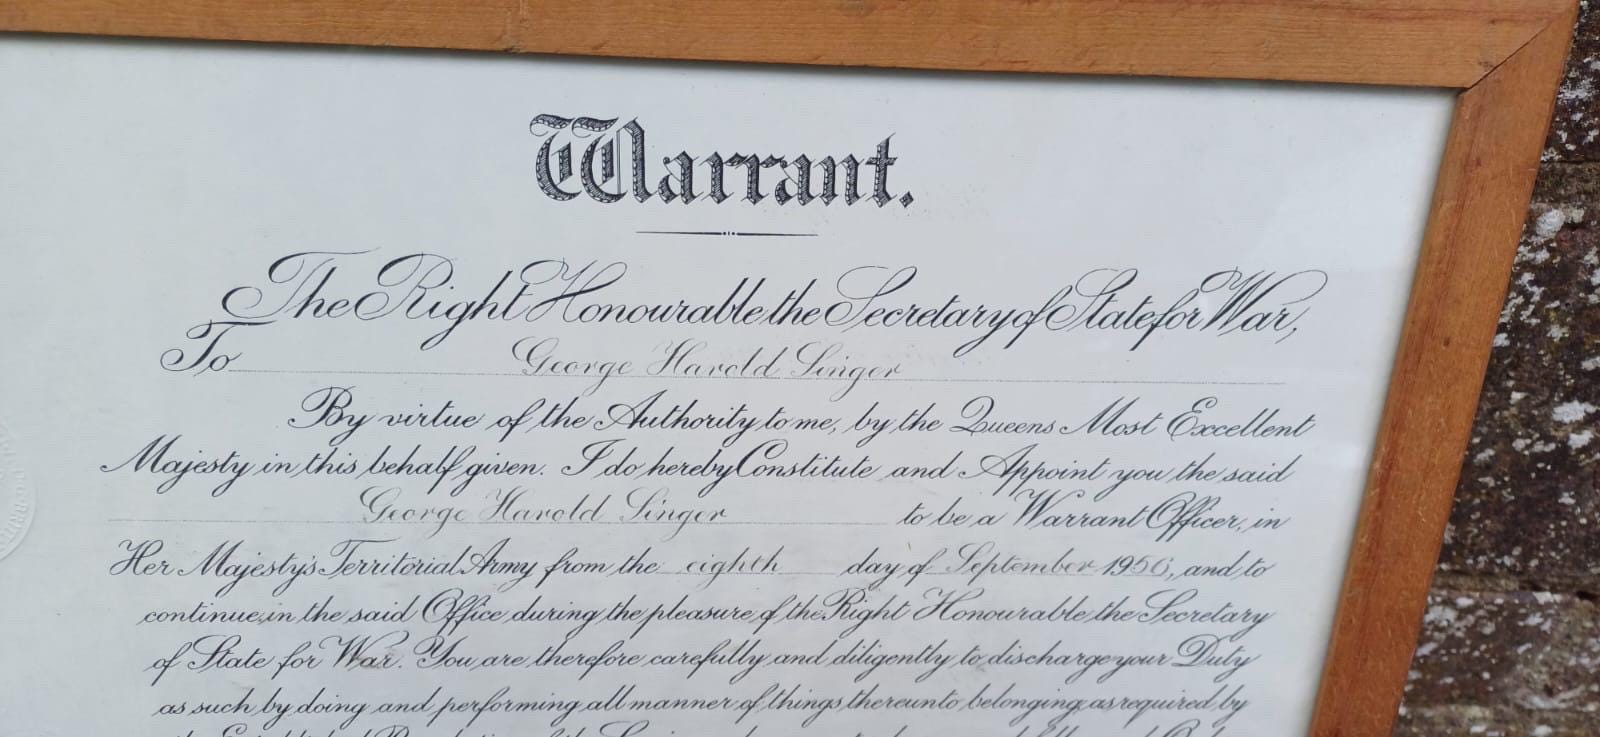 Warrant.
The Right Honourable the Secretary of State for War,
To George Harold Singer
By virtue of the Authority to me, by the Queens Most Excellent
Majesty in this behalf given. I do hereby Constitute and Appoint you the said
George Harold Singer to be a Warrant Officer, in
Her Majesty's Territorial Army from the eighth day of September 1956, and to
continue in the said Office during the pleasure of the Right Honourable the Secretary
of State for War. You are therefore carefully and diligently to discharge your Duty
as such by doing and performing all manner of things thereunto belonging as required by